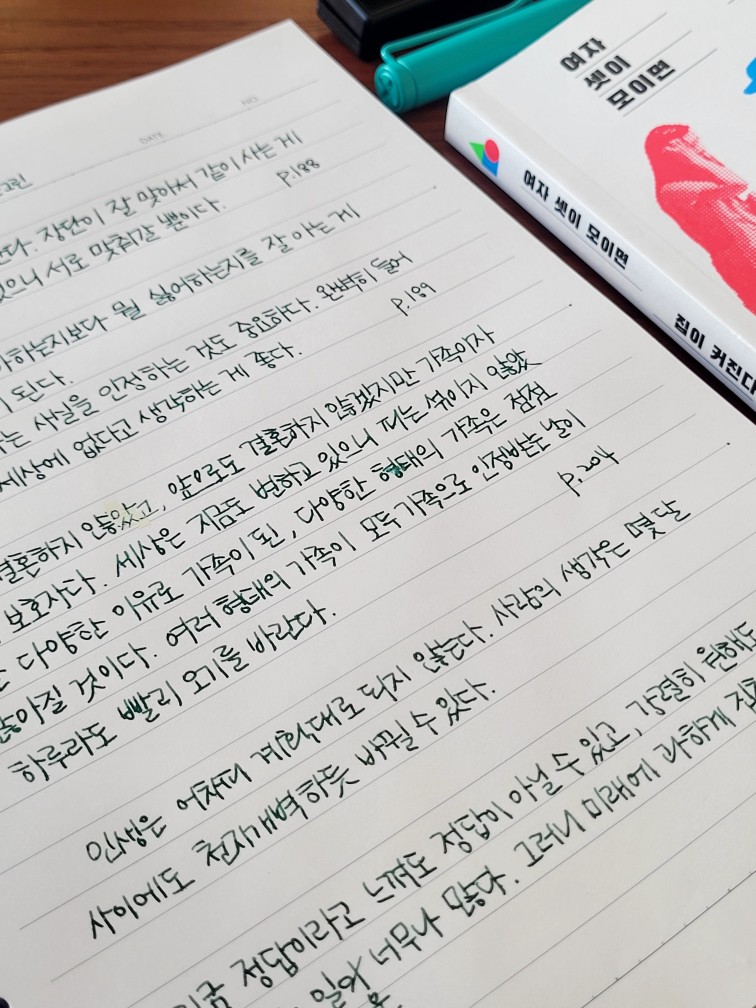 DATE
NO
장단이 잘 맞아서 같이 사는 게
있으니 서로 맞춰갈 뿐이다. p.188
하는지보다 뭘 싫어하는지를 잘 아는 게
된다. p.189
사실을 인정하는 것도 중요하다. 완벽히 들어
세상에 없다고 생각하는 게 좋다.
결혼하지 않았고, 앞으로도 결혼하지 않겠지만 가족이자
보호자다. 세상은 지금도 변하고 있으니
다양한 이유로 가족이 된, 다양한 형태의 가족은 점점
많아질 것이다. 여러 형태의 가족이 모두 가족으로 인정받는 날이
하루라도 빨리 오기를 바란다. p.204
인생은 어차피 계획대로 되지 않는다. 사람의 생각은 몇 달
사이에도 천지개벽하듯 바뀔 수 있다.
지금 정답이라고 느껴도 정답이 아닐 수 있고, 강렬히 원해도
일이 너무나 많다. 그러니 미래에 과하게
여자
셋이
모이면
여자 셋이 모이면
집이 커진다